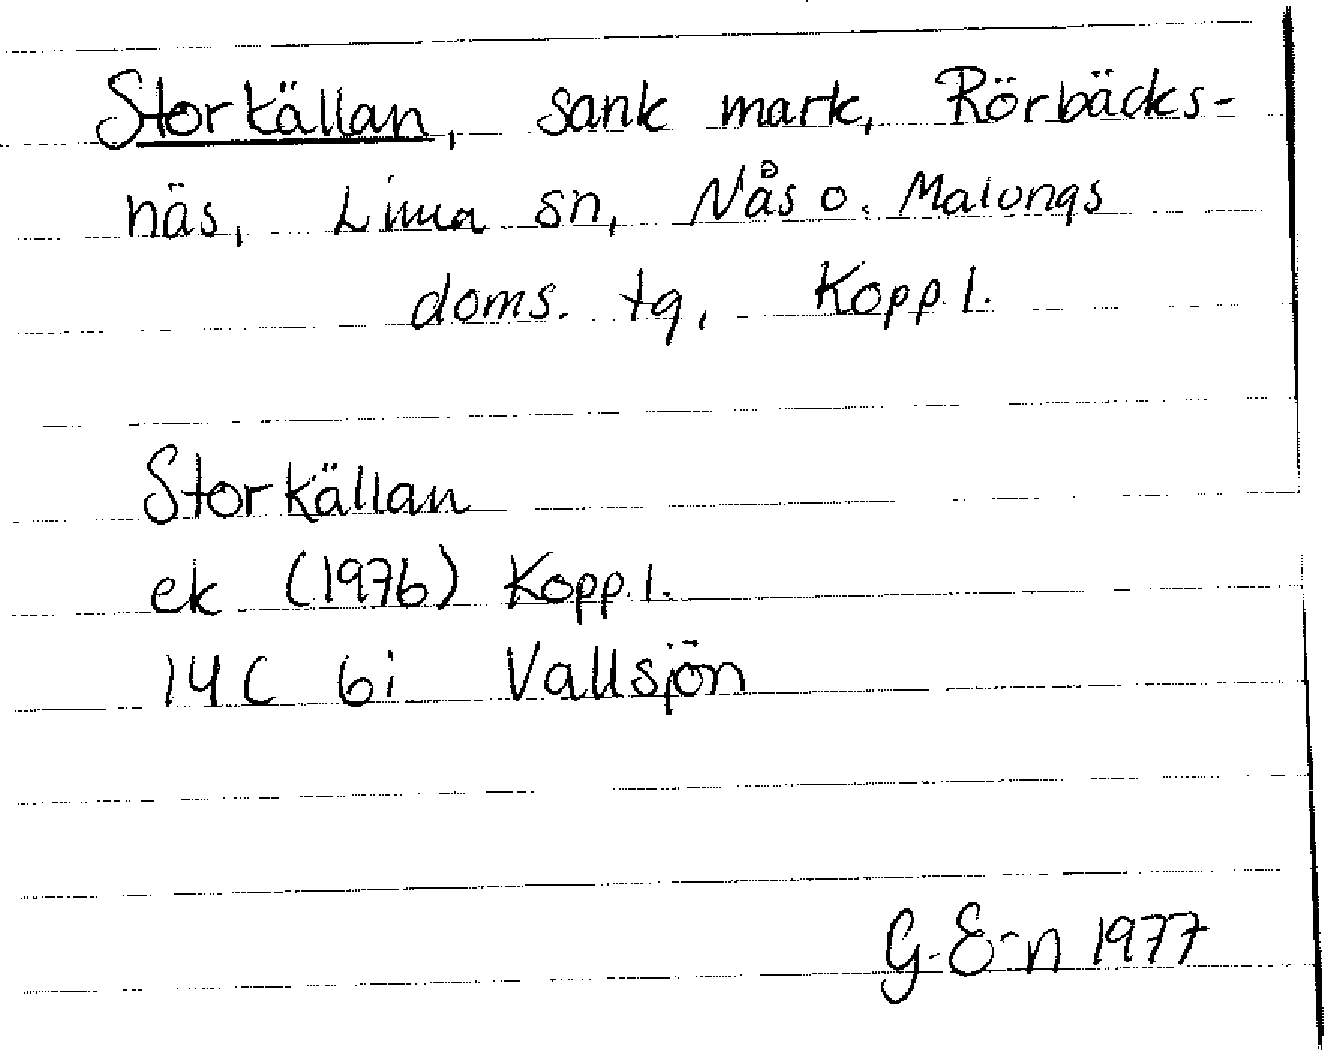 Storkällan, sank mark, Rörbäcks-
näs, Lima sn, Nås o. Malungs
doms. tg, Kopp l.
Storkällan
ek (1976) Kopp. l.
14C 6i Vallsjön
G. E-n 1977